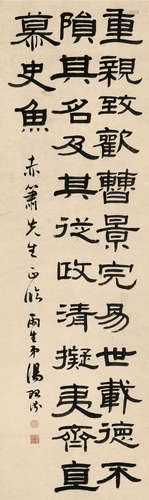 重親致歡曹景完易世載德不
隕其名及其從政清擬夷齊直
慕史魚
赤簫先生正臨 雨生弟湯貽汾